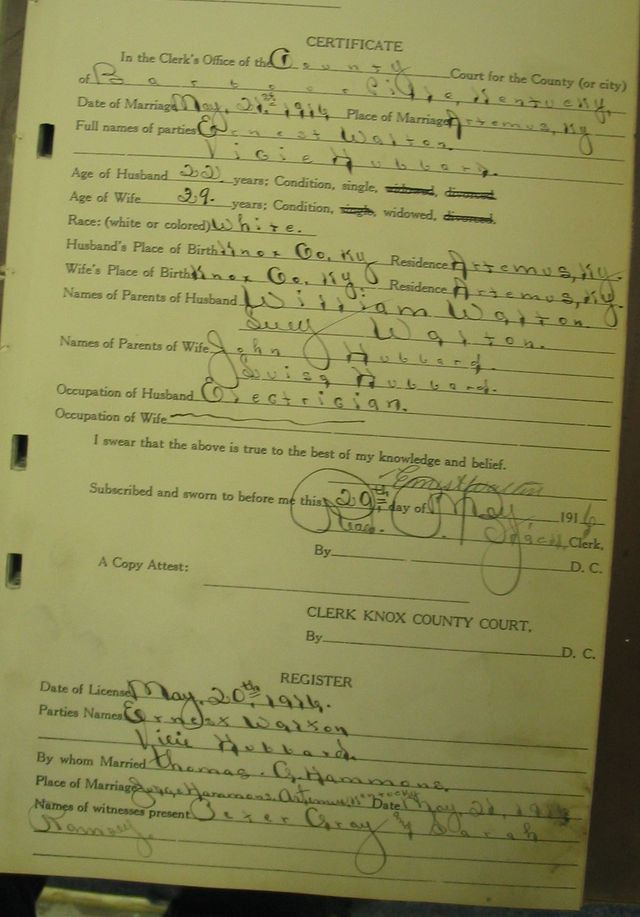 CERTIFICATE
In the Clerk's Office of the County Court for the County (or city)
of Barbourville, Kentucky,
Date of Marriage May, 21st, 1916 Place of Marriage Artemus, Ky
Full names of parties Ernest Walton.
Vicie Hubbard.
Age of Husband 22 years; Condition, single, widowed, divorced
Age of Wife 29. years; Condition, single, widowed, divorced.
Race: (white or colored) White.
Husband's Place of Birth Knox Co, Ky Residence Artemus, Ky.
Wife's Place of Birth Knox Co, Ky Residence Artemus, Ky.
Names of Parents of Husband William Walton.
Lucy Walton.
Names of Parents of Wife John Hubbard.
Louisa Hubbard.
Occupation of Husband Electrician.
Occupation of Wife
I swear that the above is true to the best of my knowledge and belief.
Subscribed and sworn to before me this 20th, day of May, 1916
Clerk,
By D. C.
A Copy Attest:
CLERK KNOX COUNTY COURT,
By D. C.
REGISTER
Date of License May, 20th, 1916.
Parties Names Ernest Walton
Vicie Hubbard.
By whom Married Thomas. G. Hammons.
Place of Marriage Hammons, Artemus, Kentucky Date May 21, 1916
Names of witnesses present Gray & Sarah
Ramsey.